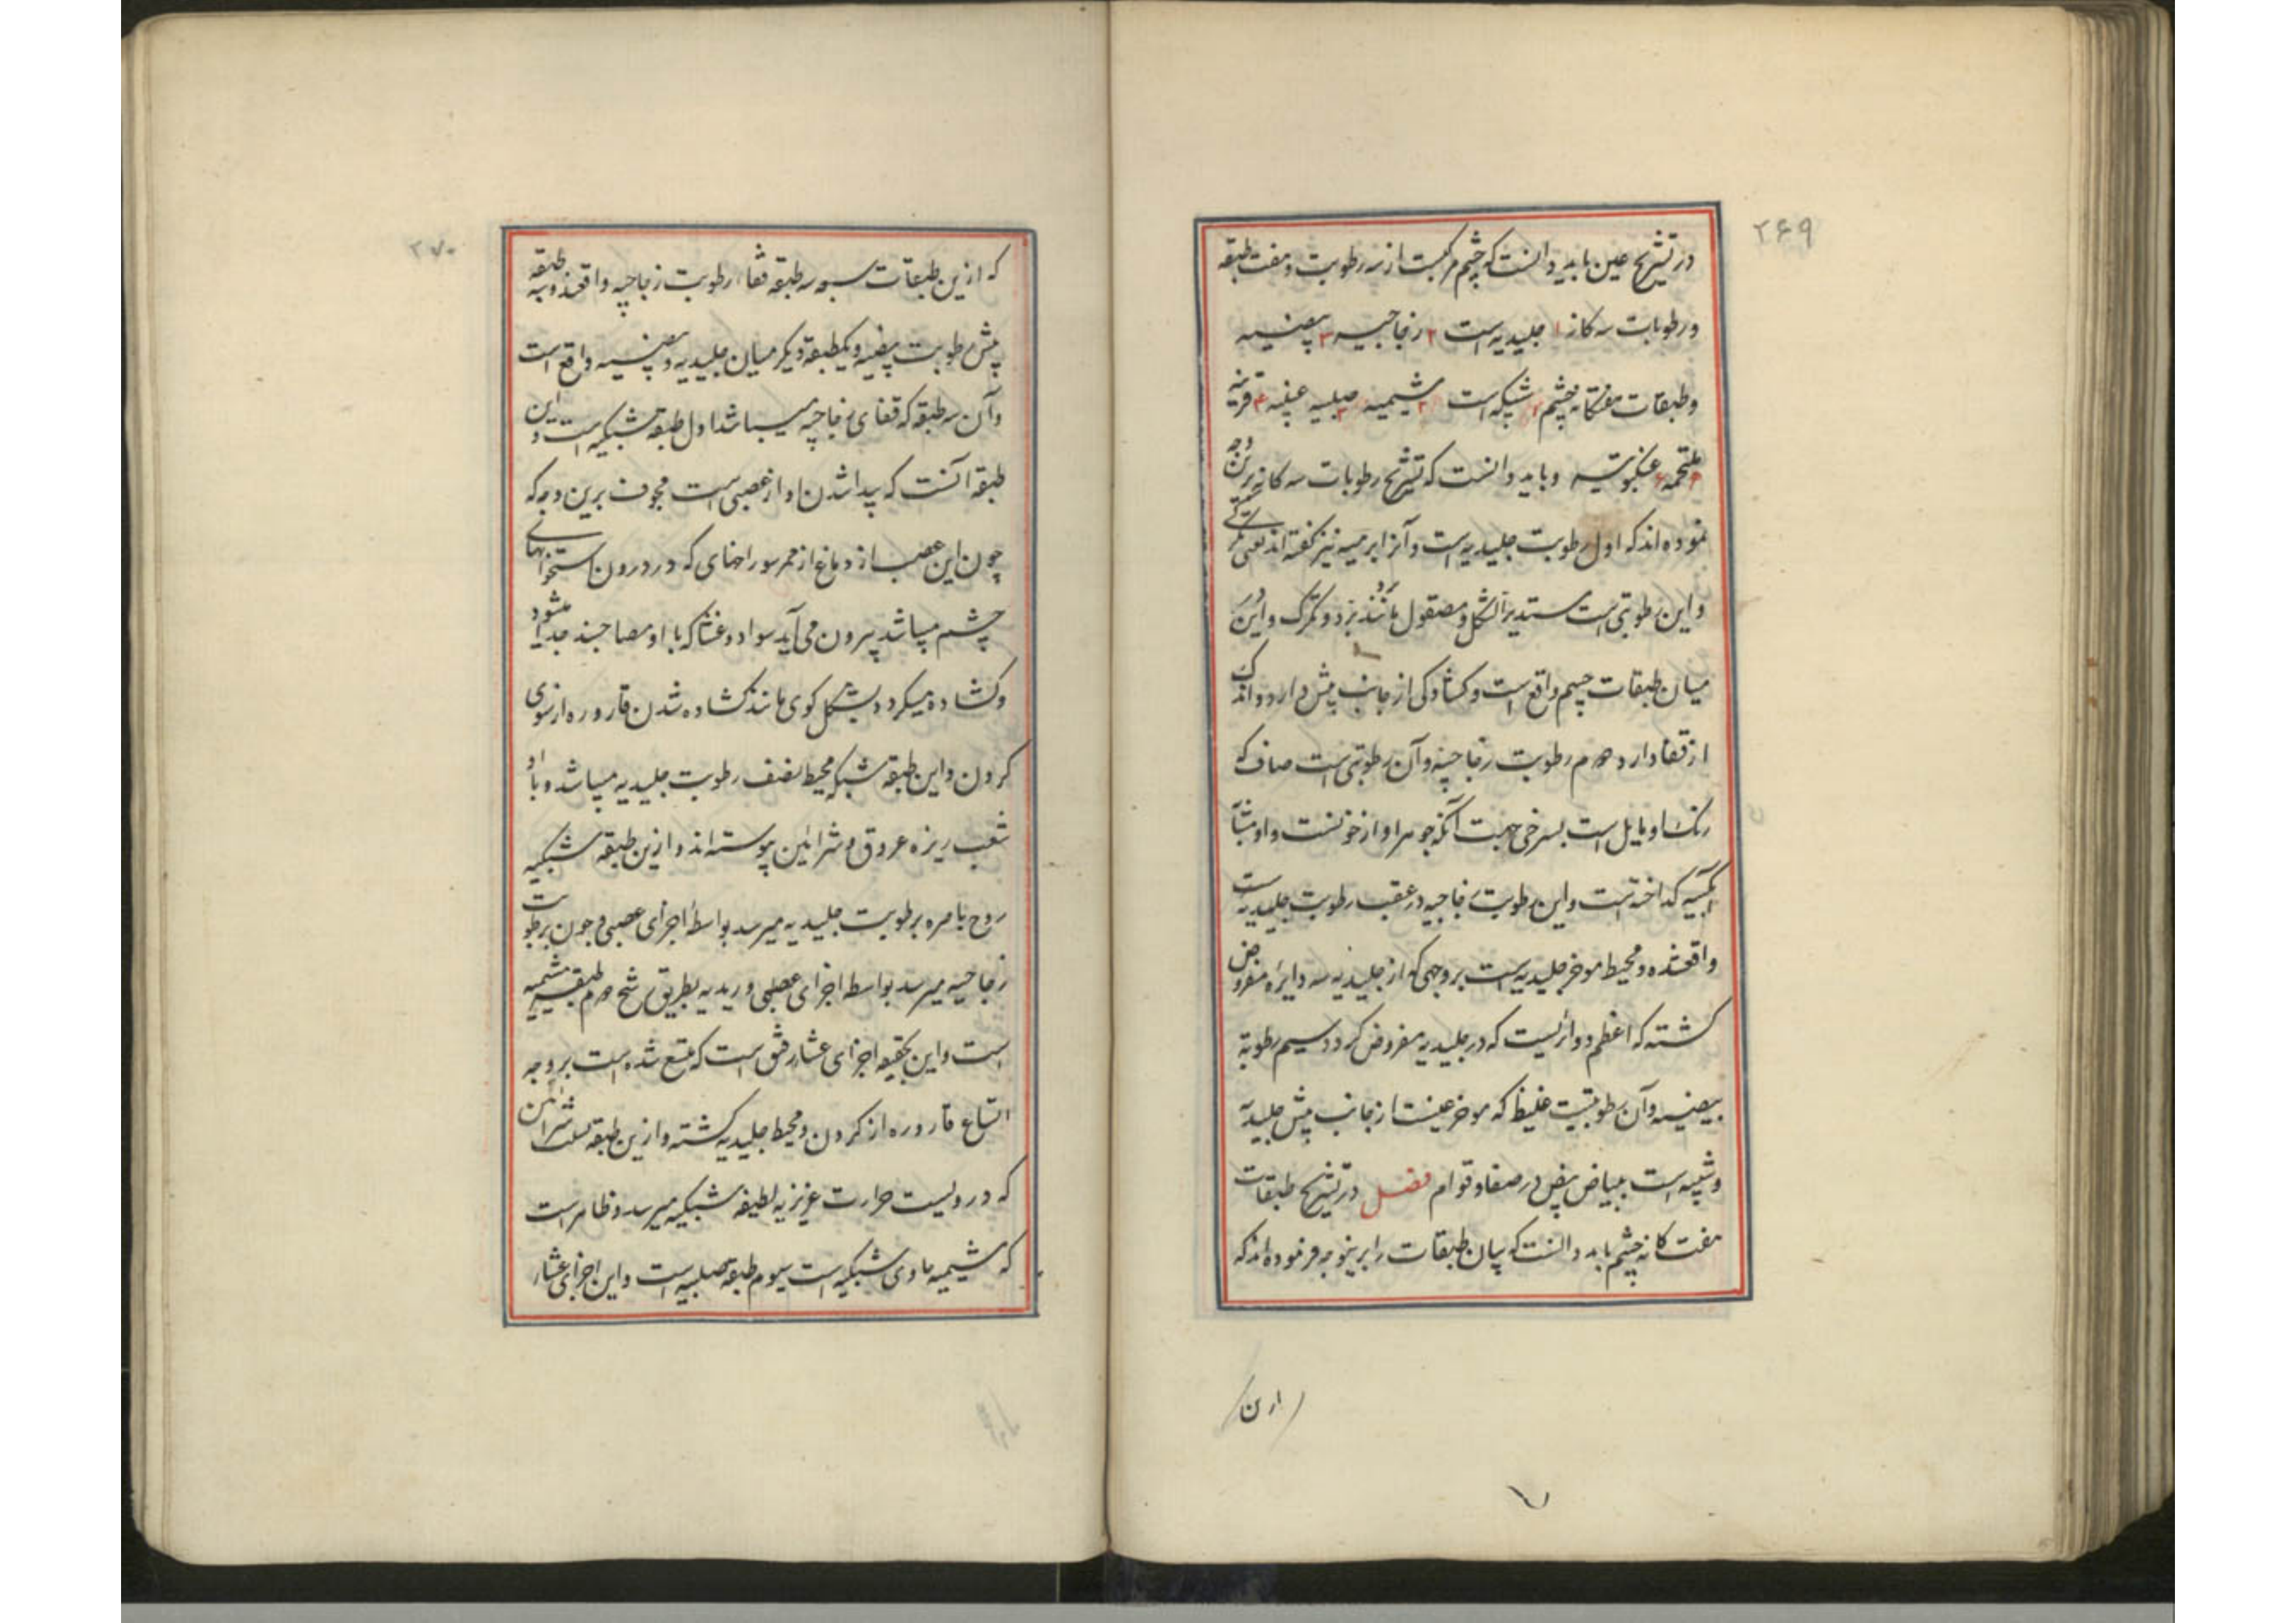 ۲۶۹
در تشریح عین باید دانست که چشم مرکبست از سه رطوبت و هفت طبقه
و رطوبات سه کانه ۱ جلیدیه است ۲ زجاجیه ۳ بیضیه
و طبقات هفتکانه چشم ۱ شبکیه است ۲ مشیمیه ۳ صلبیه عنبیه ۴ قرنیه
ملتحمه ۶ عنکبوتیه و باید دانست که تشریح رطوبات سه کانه برین وجه
نموده اند که اول رطوبت جلیدیه است و آنرا بردیه نیز گفته اند یعنی تگرگی
و این رطوبتی است مستدیر الشکل و مصقول مانند برد و تکرک و این در
میان طبقات چشم واقع است و کشادکی از جانب پیش دارد و اندک
از قفا دارد دوم رطوبت زجاجیه و آن رطوبتی است صاف که
رنک او مایل است بسرخی جهت آنکه جوهر او از خونست و او مشابه
آبکینه کداخته است و این رطوبت زجاجیه در عقب رطوبت جلیدیه است
واقعشده و محیط موخر جلیدیه است بر وجهی که از جلیدیه سه دایره مفروض
کشته که اعظم دوائریست که در جلیدیه مفروض کردد سیم رطوبة
بیضیه و آن رطوبتیست غلیظ که موخر عینست از جانب پیش جلیدیه
و شبیه است ببیاض بیض در صفا و قوام فصل در تشریح طبقات
هفت کانه چشم باید دانست که بیان طبقات را برینوجه فرموده اند که
ازن
۲۷۰
که ازین طبقات سبعه سه طبقه قفاء رطوبت زجاجیه واقعند و سه طبقه
پیش رطوبت بیضیه و یکطبقه دیکر میان جلیدیه و بیضیه واقع است
و آن سه طبقه که قفای زجاجیه میباشد اول طبقه شبکیه است و این
طبقه آنست که پیدا شدن او از عصبی است مجوف برین وجه که
چون این عصب از دماغ از ممر سوراخهای که در درون استخوانهای
چشم میباشد بیرون می آید سوای دو غشا که با او مصاحبند جدا میشود
و کشاده میکردد بشکل کوی مانند کشاده شدن قاروره از سوی
کردن و این طبقه شبکیه محیط نصف رطوبت جلیدیه میباشد و با او
شعب ریزه عروق و شرائین پیوسته اند و ازین طبقه شبکیه
روح باصره برطوبت جلیدیه میرسد بواسطه اجزای عصبی و چون برطوبت
زجاجیه میرسد بواسطه اجزای عصلبی وریدیه بطریق رشح دوم طبقه مشیمیه
است و این بحقیقه اجزای غشاء رقیق است که متسع شده است بر وجه
اتساع قاروره از کردن و محیط جلیدیه کشته و ازین طبقه بسبب شرائین
که در ویست حرارت غریزیه لطیفه شبکیه میرسد و ظاهر است
که مشیمیه حاوی شبکیه است سیوم طبقه صلبیه است و این اجزای غشاء